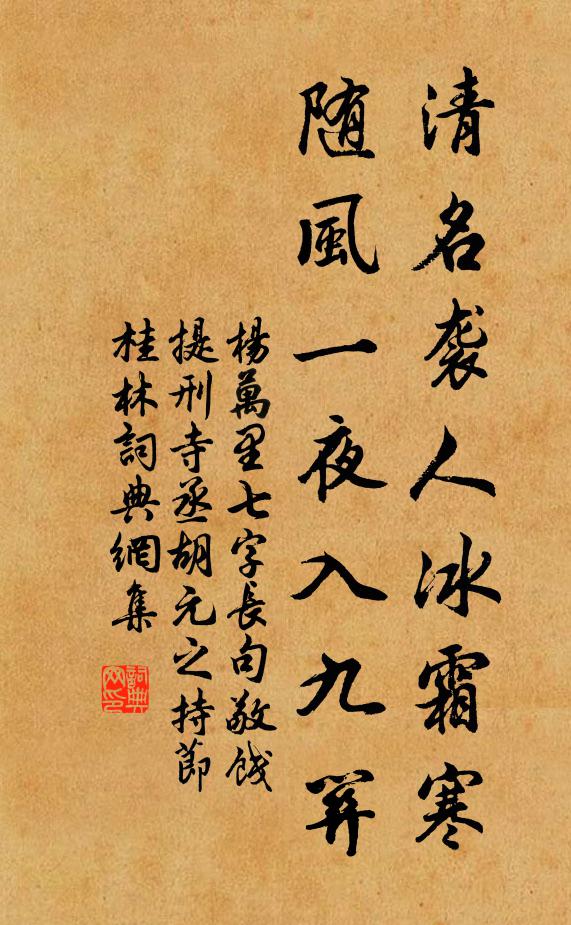 清名袭人冰霜寒
随風一夜入九關
楊萬里七字長句敬餞
提刑寺丞胡元之持節
桂林詞典網集
詞典
网印